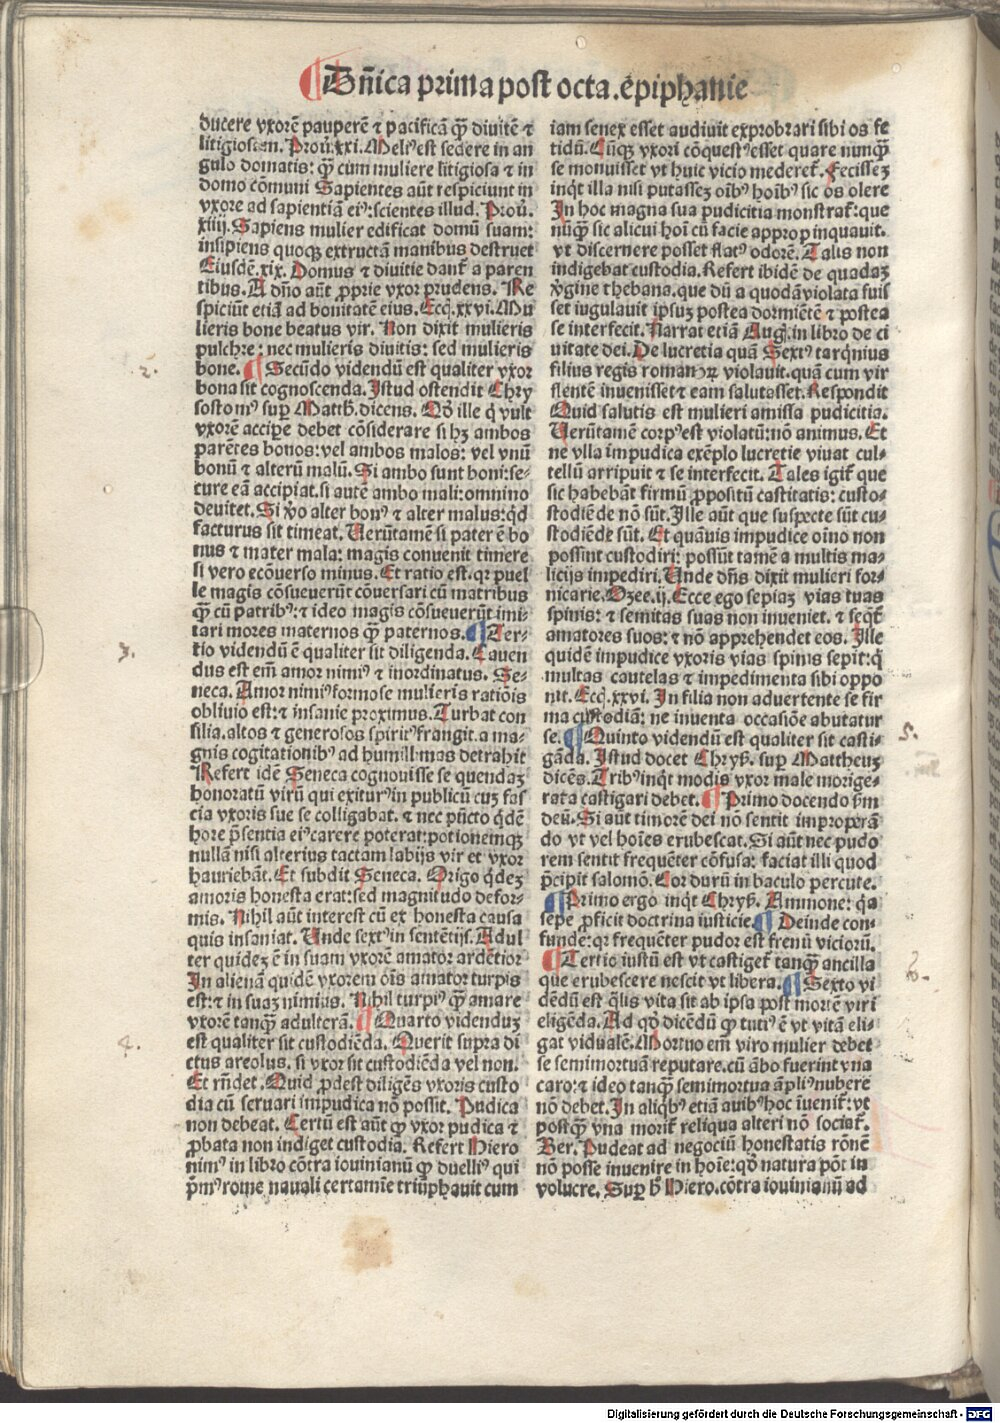 ¶ Dñica prima post octa. epiphanie
ducere vxorē pauperē ⁊ pacificā q̃ȝ diuitē ⁊
litigiosam. Prouͥ. xxi. Meliꝰ est sedere in an
gulo domatis: q̃ȝ cum muliere litigiosa ⁊ in
domo cōmuni Sapientes aūt respiciunt in
vxore ad sapientiā eiꝰ: scientes illud. Prouͥ.
xiiij. Sapiens mulier edificat domū suam:
insipiens quoqꝫ extructā manibus destruet
Eiusdē. xix. Domus ⁊ diuitie dant᷑ a paren
tibus. A dño aūt ꝓprie vxor prudens. Re
spiciūt etiā ad bonitatē eius. Ecci̾. xxvi. Mu
lieris bone beatus vir. Non dixit mulieris
pulchre: nec mulieris diuitis: sed mulieris
bone. ¶ Secūdo videndū est qualiter vxor
bona sit cognoscenda. Istud ostendit Chry
sostomꝰ suꝑ Matth̄. dicens. Qō ille q̇ vult
vxorē accipe debet cōsiderare si hꝫ ambos
parētes bonos: vel ambos malos: vel vnū
bonū ⁊ alterū malū. Si ambo sunt boni: se-
cure eā accipiat. si autē ambo mali: omnino
deuitet. Si v̊o alter bonꝰ ⁊ alter malus: qd̄
facturus sit timeat. Uerūtamē si pater ē bo
nus ⁊ mater mala: magis conuenit timere
si vero ecōuerso minus. Et ratio est. qꝛ puel
le magis cōsueuerūt cōuersari cū matribus
q̃ȝ cū patribꝰ: ⁊ ideo magis cōsueuerūt imi-
tari mores maternos q̃ȝ paternos. ¶ Ter-
tio videndū ē qualiter sit diligenda. Cauen
dus est em̄ amor nimiꝰ ⁊ inordinatus. Se-
neca. Amor nimiꝰ formose mulieris ratiōis
obliuio est: ⁊ insanie proximus. Turbat con
silia. altos ⁊ generosos spiritꝰ frangit. a ma-
gnis cogitationibꝰ ad humillimas detrahit
Refert idē Seneca cognouisse se quendaȝ
honoratū virū qui exiturꝰ in publicū cuȝ fas
cia vxoris sue se colligabat. ⁊ nec pūcto qdē
hore p̄sentia eiꝰ carere poterat: potionemqꝫ
nullā nisi alterius tactam labijs vir et vxor
hauriebāt. Et subdit Seneca. Origo qdeȝ
amoris honesta erat: sed magnitudo defor-
mis. Nihil aūt interest cū ex honesta causa
quis insaniat. Unde sextꝰ in sentētijs. Adul
ter quideȝ ē in suam vxorē amator ardētior
In alienā quidē vxorem oīs amator turpis
est: ⁊ in suaȝ nimius. Nihil turpiꝰ q̃ȝ amare
vxorē tanq̃ȝ adulterā. ¶ Quarto videnduȝ
est qualiter sit custodiēda. Querit supra di
ctus areolus. si vxor sit custodiēda vel non.
Et rñdet. Quid ꝓdest diligēs vxoris custo
dia cū seruari impudica nō possit. Pudica
non debeat. Certū est aūt ꝙ vxor pudica ⁊
ꝓbata non indiget custodia. Refert Hiero
nimꝰ in libro cōtra iouinianū ꝙ duelliꝰ qui
p̄mꝰ rome nauali certamīe triūphauit cum
iam senex esset audiuit exprobrari sibi os fe
tidū. Cūqꝫ vxori cōquestꝰ esset quare nunq̃ȝ
se monuisset vt huic vicio mederet᷑. Fecisseȝ
inqͥt illa nisi putasseȝ oībꝰ hoībꝰ sic os olere
In hoc magna sua pudicitia monstrat᷑: que
nūq̃ȝ sic alicui hoī cū facie appropinquauit.
vt discernere posset flatꝰ odorē. Talis non
indigebat custodia. Refert ibidē de quadaȝ
v̓gine thebana. que dū a quodā violata fuis
set iugulauit ipsuȝ postea dormiētē ⁊ postea
se interfecit. Narrat etiā Augͣ. in libro de ci
uitate dei. De lucretia quā Sextꝰ tarq̇nius
filius regis romanoꝝ violauit. quā cum vir
flentē inuenisset ⁊ eam salutasset. Respondit
Quid salutis est mulieri amissa pudicitia.
Uerūtamē corpꝰ est violatū: nō animus. Et
ne vlla impudica exēplo lucretie viuat cul-
tellū arripuit ⁊ se interfecit. Tales igit᷑ que
sic habebāt firmū ꝓpositū castitatis: custo-
stodiēde nō sūt. Ille aūt que suspecte sūt cu-
stodiēde sūt. Et quāuis impudice oīno non
possint custodiri: possūt tamē a multis ma-
licijs impediri. Unde dñs dixit mulieri for
nicarie. Ozee. ij. Ecce ego sepiaȝ vias tuas
spinis: ⁊ semitas suas non inueniet. ⁊ seq̇t᷑
amatores suos: ⁊ nō apprehendet eos. Ille
quidē impudice vxoris vias spinis sepit: q̇
multas cautelas ⁊ impedimenta sibi oppo
nit. Ecci̾. xxvi. In filia non aduertente se fir
ma custodiā: ne inuenta occasiōe abutatur
se. ¶ Quinto videndū est qualiter sit casti-
gāda. Istud docet Chryẜ. suꝑ Mattheuȝ
dicēs. Tribꝰ inqͥt modis vxor male morige-
rata castigari debet. ¶ Primo docendo ẜm
deū. Si aūt timorē dei nō sentit improperā
do vt vel hoīes erubescat. Si aūt nec pudo
rem sentit frequēter cōfusa: faciat illi quod
p̄cipit salomō. Cor durū in baculo percute.
¶ Primo ergo inqͥt Chryẜ. Ammone: qꝛ
sepe ꝓficit doctrina iusticie. ¶ Deinde con-
funde: qꝛ frequēter pudor est frenū viciorū.
¶ Tertio iustū est vt castiget᷑ tanq̃ȝ ancilla
que erubescere nescit vt libera. ¶ Sexto vi
dēdū est q̄lis vita sit ab ipsa post mortē viri
eligēda. Ad qd̄ dicēdū ꝙ tutiꝰ ē vt vitā eli-
gat vidualē. Mortuo em̄ viro mulier debet
se semimortuā reputare. cū ābo fuerint vna
caro: ⁊ ideo tanq̃ȝ semimortua ampliꝰ nubere
nō debet. In aliqͥbꝰ etiā auibꝰ hoc īuenit᷑: vt
postq̃ȝ vna morit᷑ reliqua alteri nō sociat᷑.
Ber. Pudeat ad negociū honestatis rōnē
nō posse inuenire in hoīe: qd̄ natura pōt in
volucre. Suꝑ b̄ Hiero. cōtra iouinianū ad
2.
3.
4.
5.
6.
Digitalisierung gefördert durch die Deutsche Forschungsgemeinschaft - DFG